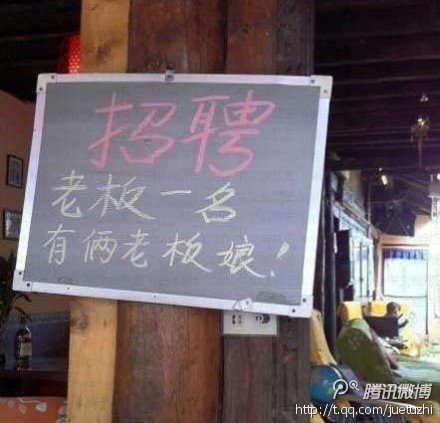 招聘
老板一名
有俩老板娘！
腾讯微博
http://t.qq.com/juetuzhi